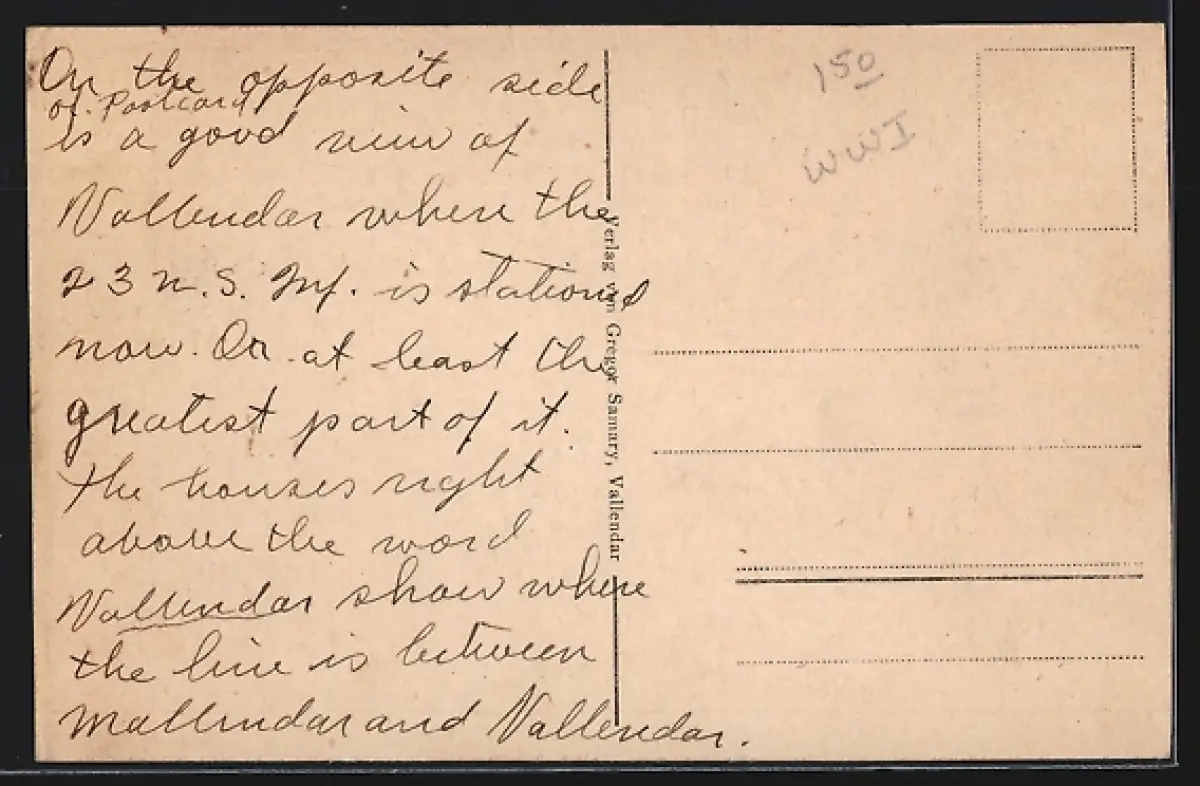 On the opposite side
of Postcard
is a good view of
Vallendar where the
23 N.S. Inf. is stationed
now. On at least the
greatest part of it.
The houses right
above the word
Vallendar show where
the line is between
Mallendar and Vallendar.
Verlag von Gregor Samary, Vallendar
150
WWI